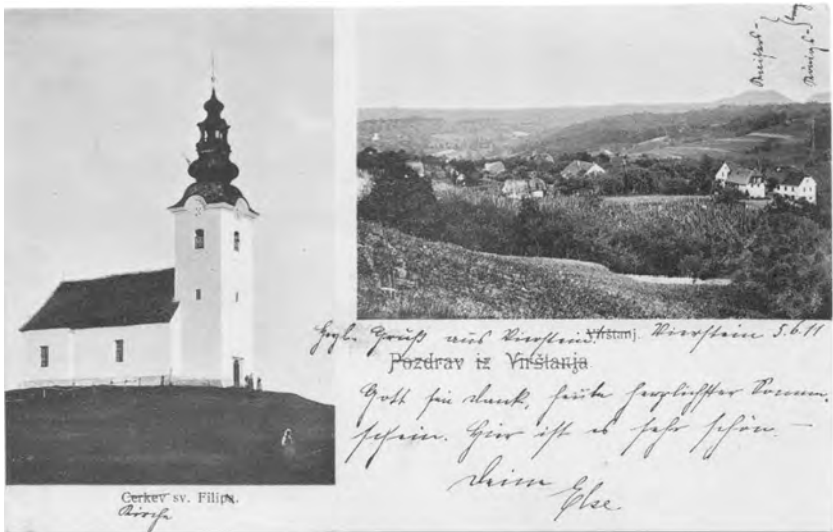 Kaisers-
Königs-
berg
Hrzl. Gruß aus Vierstein. Virštanj. Vierstein 5.6.11
Pozdrav iz Virštanja.
Gott sei Dank, heute herrlichster Sonnen-
schein. Hier ist es sehr schön. –
Deine
Else.
Cerkev sv. Filipa.
Kirche